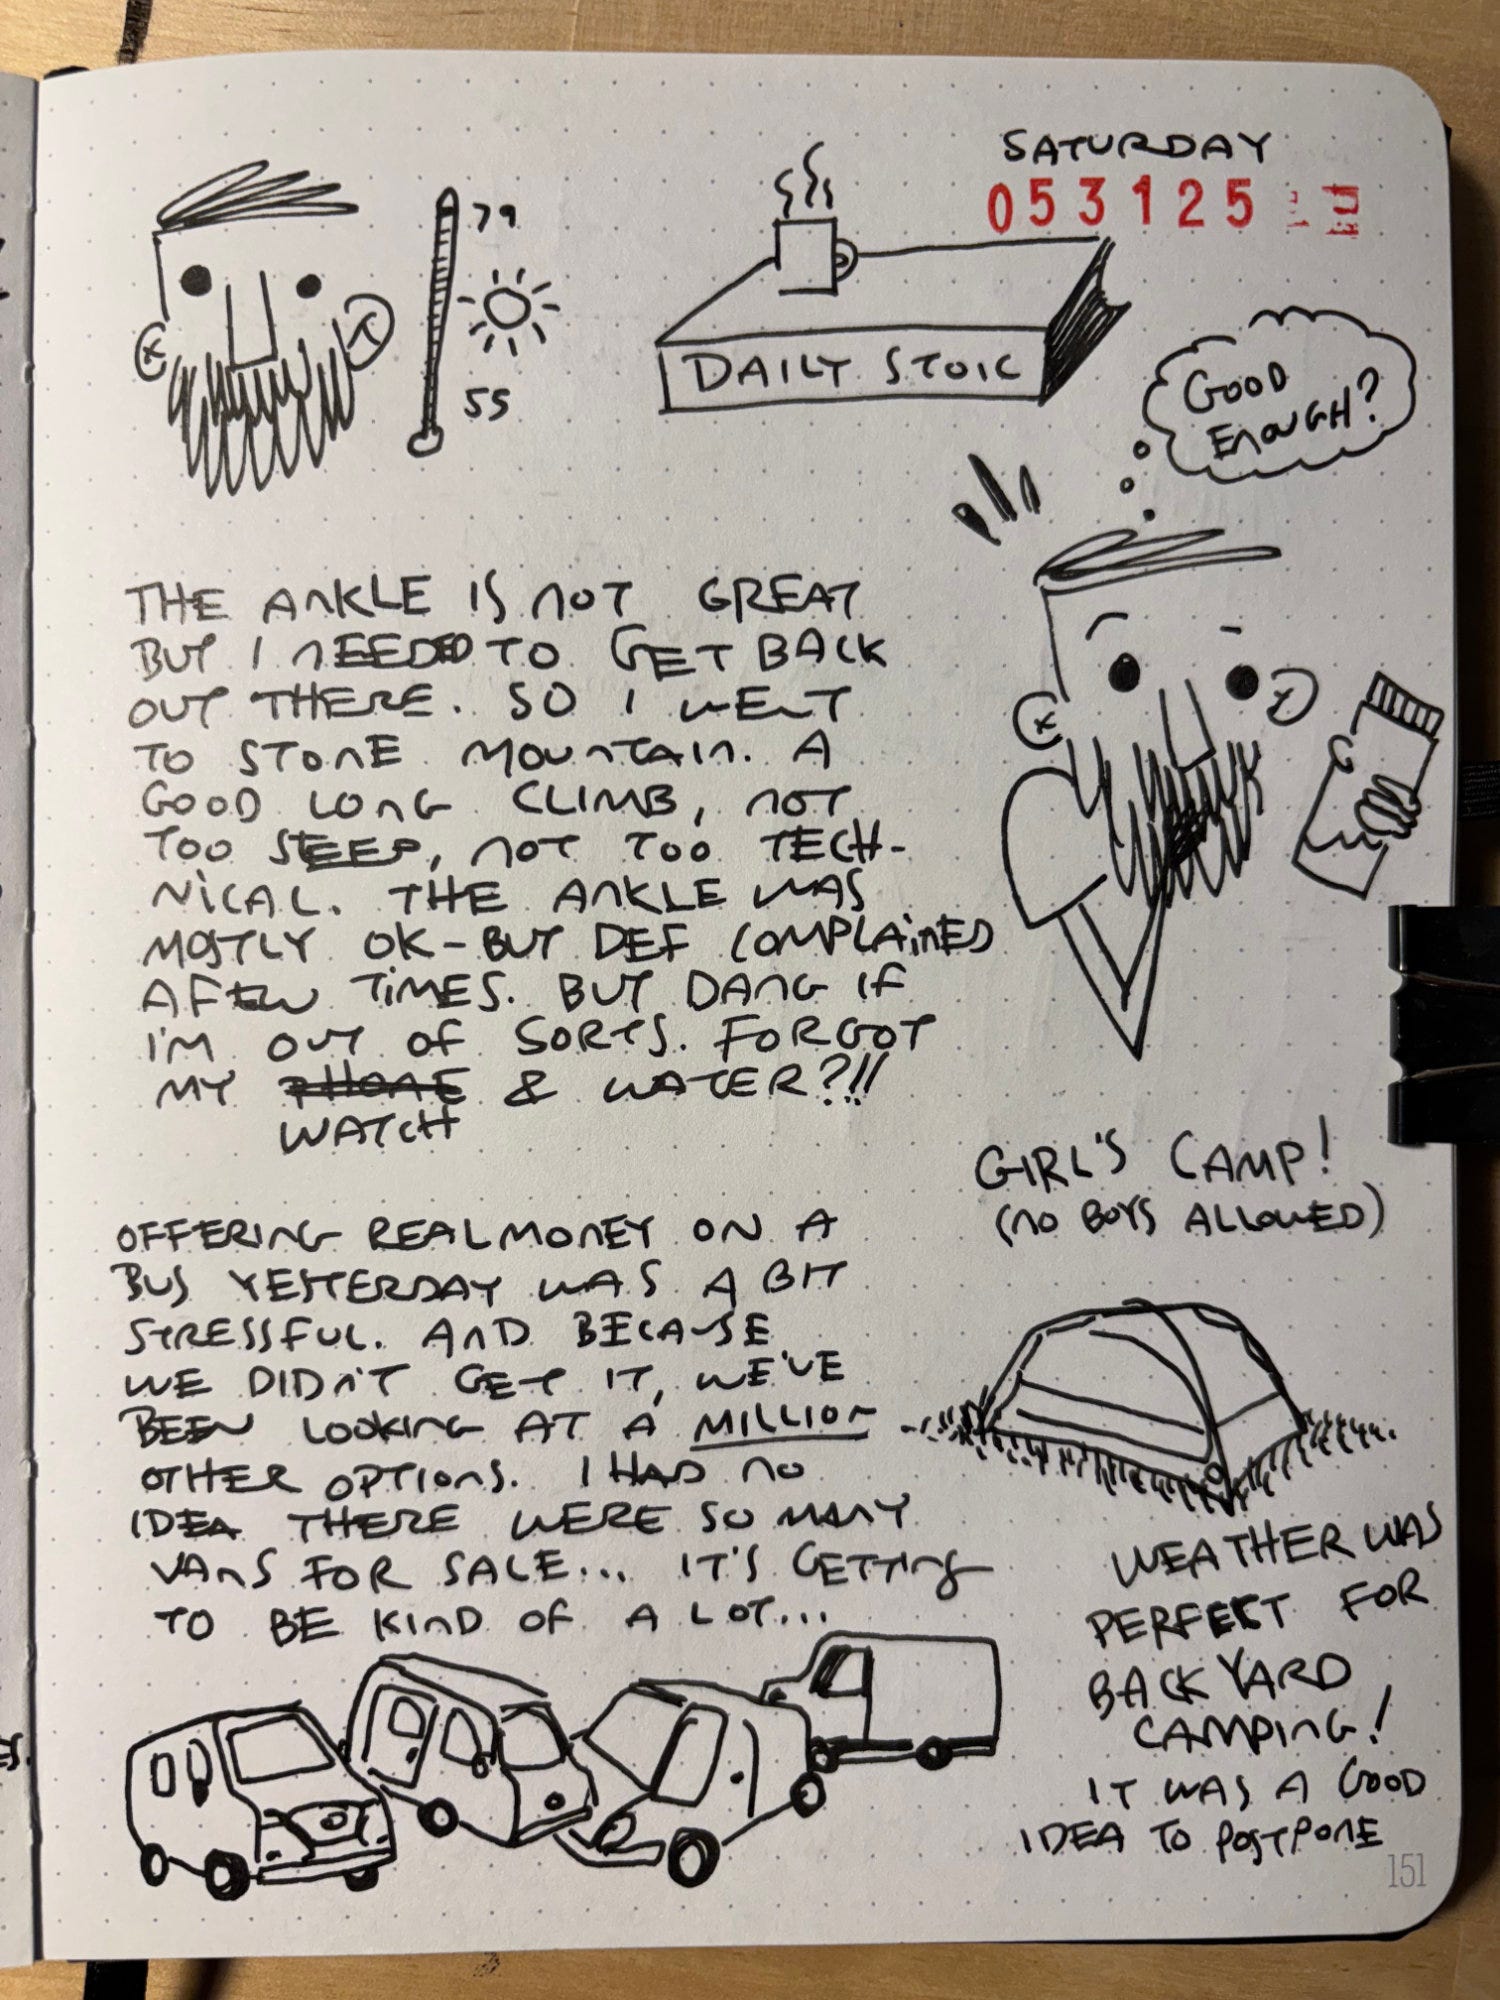 SATURDAY
053125
79
55
DAILY STOIC
GOOD
ENOUGH?
THE ANKLE IS NOT GREAT
BUT I NEEDED TO GET BACK
OUT THERE. SO I WENT
TO STONE MOUNTAIN. A
GOOD LONG CLIMB, NOT
TOO STEEP, NOT TOO TECH-
NICAL. THE ANKLE WAS
MOSTLY OK - BUT DEF COMPLAINED
A FEW TIMES. BUT DANG IF
I'M OUT OF SORTS. FORGOT
MY PHONE & WATER?!!
WATCH
GIRL'S CAMP!
(NO BOYS ALLOWED)
OFFERING REAL MONEY ON A
BUS YESTERDAY WAS A BIT
STRESSFUL. AND BECAUSE
WE DIDN'T GET IT, WE'VE
BEEN LOOKING AT A MILLION
OTHER OPTIONS. I HAD NO
IDEA THERE WERE SO MANY
VANS FOR SALE... IT'S GETTING
TO BE KIND OF A LOT...
WEATHER WAS
PERFECT FOR
BACKYARD
CAMPING!
IT WAS A GOOD
IDEA TO POSTPONE
151